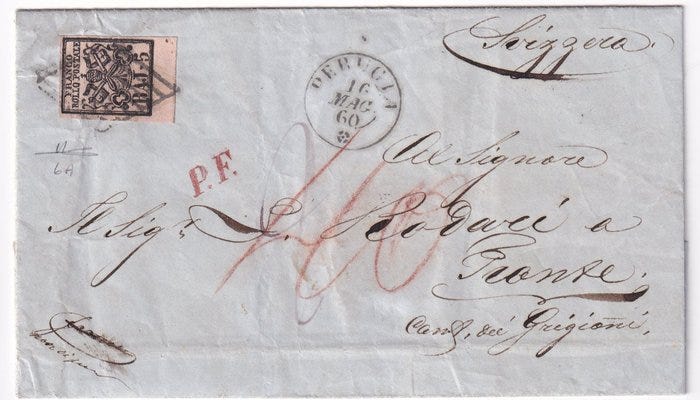 FRANCO
BOLLO POSTALE
5 BAJ
PERUGIA
16
MAG
60
Svizzera.
P.F.
11
6A
40
Al Signore
Il Sig.r L. Rodari a
Fronte.
Cant. dei Grigioni.
franca